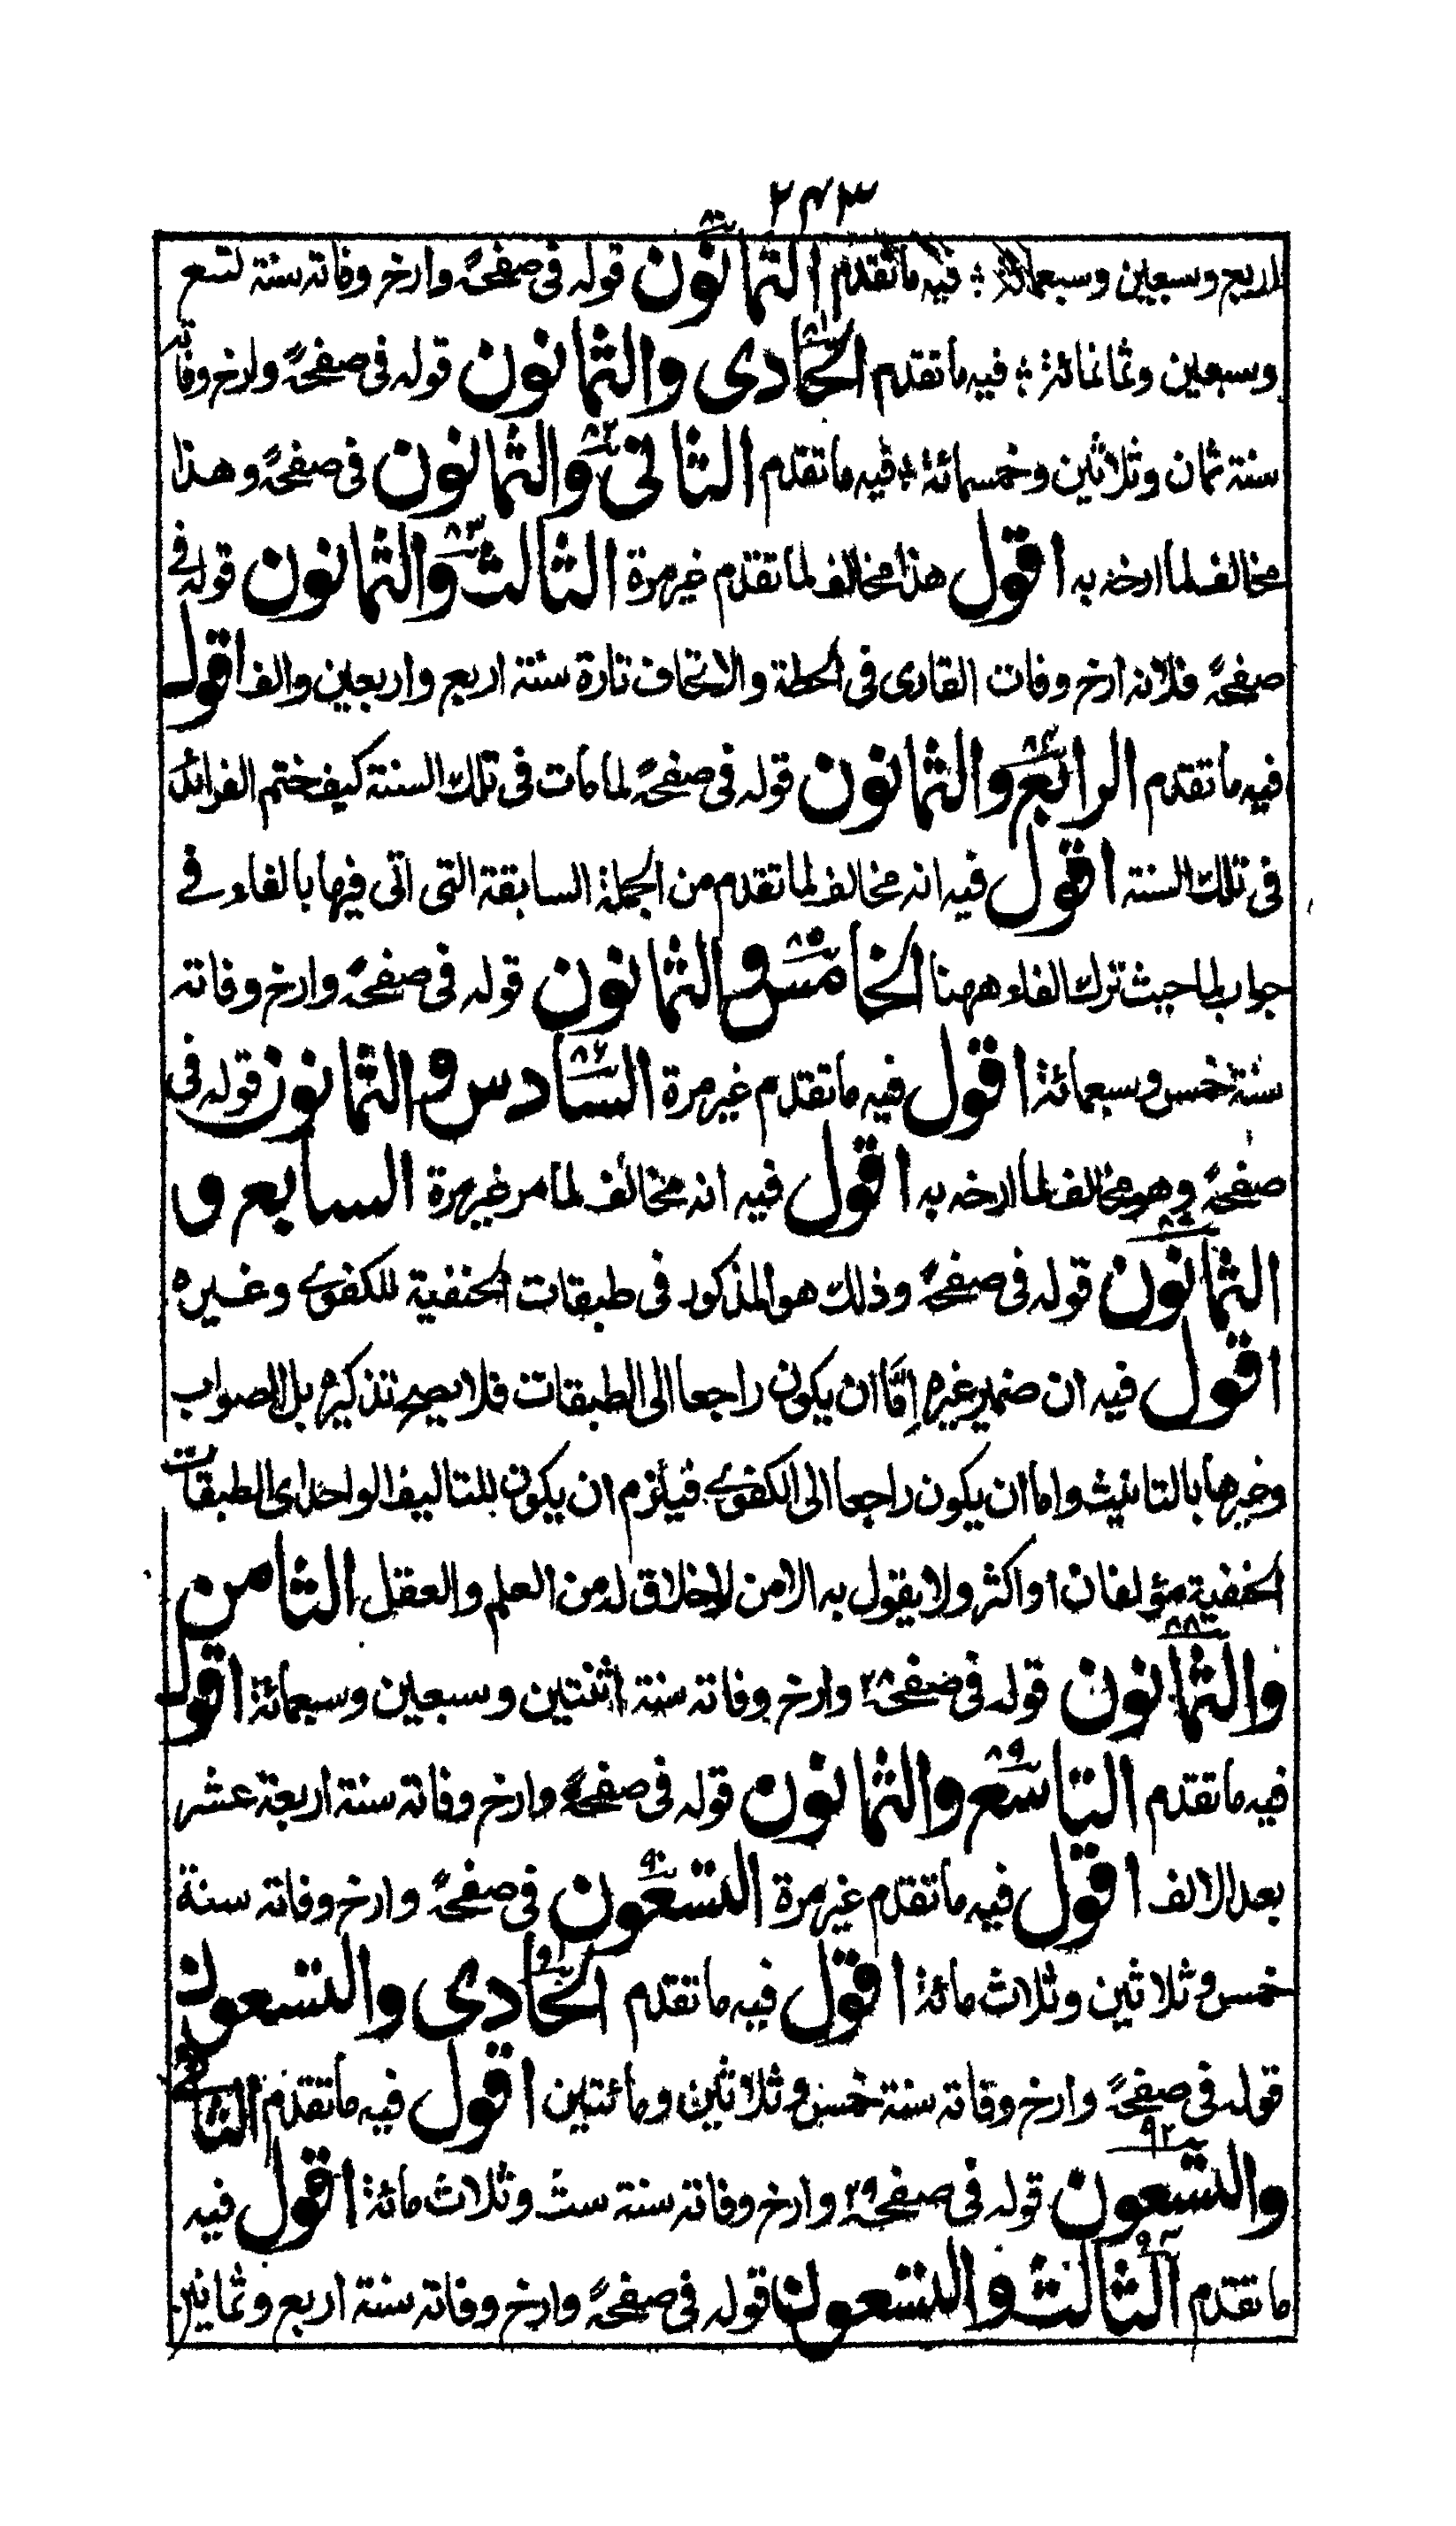 ۲۴۳
اربع وسبعين وسبعمائة ؛ فيه ما تقدم الثمانون ۸۰ قوله فى صفحه وارخ وفاته سنة تسع
وسبعين وثمانمائة ؛ فيه ما تقدم الحادى والثمانون ۸۱ قوله فى صفحه وارخ وفاته
سنة ثمان وثلاثين وخمسمائة ؛ فيه ما تقدم الثانى والثمانون ۸۲ فى صفحه وهذا
مخالف لما ارخه به اقول هذا مخالف لما تقدم غير مرة الثالث والثمانون ۸۳ قوله فى
صفحه فلانه ارخ وفات القارى فى الحطة والاتحاف تارة سنة اربع واربعين والف اقول
فيه ما تقدم الرابع والثمانون ۸۴ قوله فى صفحه لما مات فى تلك السنة كيف ختم الفرائد
فى تلك السنة اقول فيه انه مخالف لما تقدم من الجملة السابقة التى اتى فيها بالفاء فى
جواب لما حيث ترك الفاء ههنا الخامس والثمانون ۸۵ قوله فى صفحه وارخ وفاته
سنة خمس وسبعمائة اقول فيه ما تقدم غير مرة السادس والثمانون ۸۶ قوله فى
صفحه وهو مخالف لما ارخه به اقول فيه انه مخالف لما مر غير مرة السابع و
الثمانون ۸۷ قوله فى صفحه وذلك هو المذكور فى طبقات الحنفية للكفوى وغيره
اقول فيه ان ضمير غيره اِمَّا ان يكون راجعا الى الطبقات فلا يصح تذكيره بل الصواب
وغيرها بالتانيث واما ان يكون راجعا الى الكفوى فيلزم ان يكون للتاليف الواحد اى الطبقات
الحنفية مؤلفان او اكثر ولا يقول به الا من لاخلاق له من العلم والعقل الثامن
والثمانون ۸۸ قوله فى صفحه ۲۸ وارخ وفاته سنة اثنتين وسبعين وسبعمائة اقول
فيه ما تقدم التاسع والثمانون ۸۹ قوله فى صفحه وارخ وفاته سنة اربعة عشر
بعد الالف اقول فيه ما تقدم غير مرة التسعون ۹۰ فى صفحه وارخ وفاته سنة
خمس وثلاثين وثلاث مائة اقول فيه ما تقدم الحادى والتسعون ۹۱
قوله فى صفحه وارخ وفاته سنة خمس وثلاثين ومائتين اقول فيه ما تقدم الثانى
والتسعون ۹۲ قوله فى صفحه ۲۹ وارخ وفاته سنة ست وثلاث مائة اقول فيه
ما تقدم الثالث والتسعون قوله فى صفحه وارخ وفاته سنة اربع وثمانين